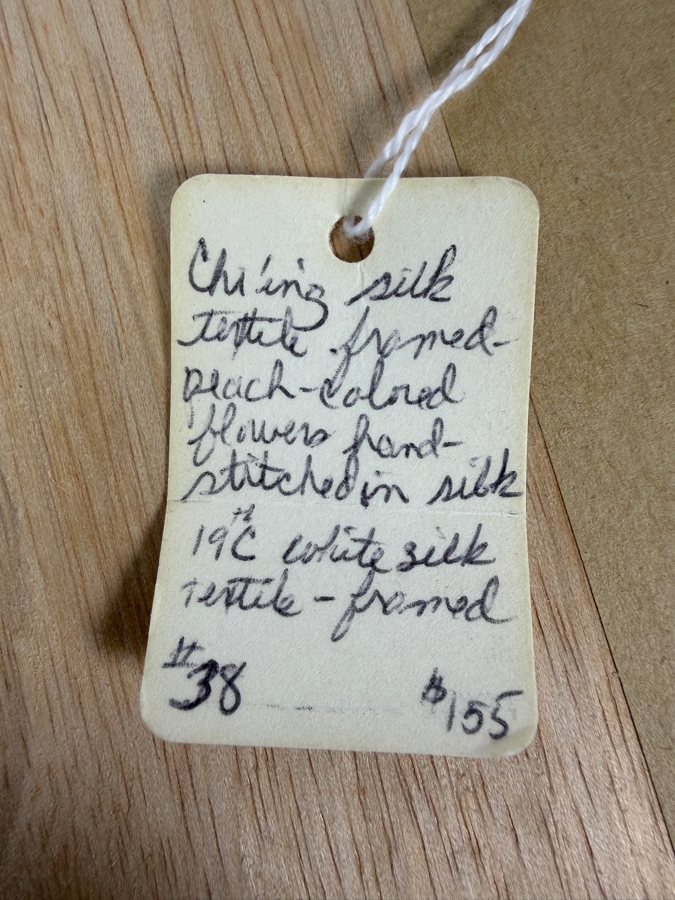 Chi'ing silk
textile framed-
peach-colored
flowers hand-
stitched in silk
19th C white silk
textile - framed
#38 $155